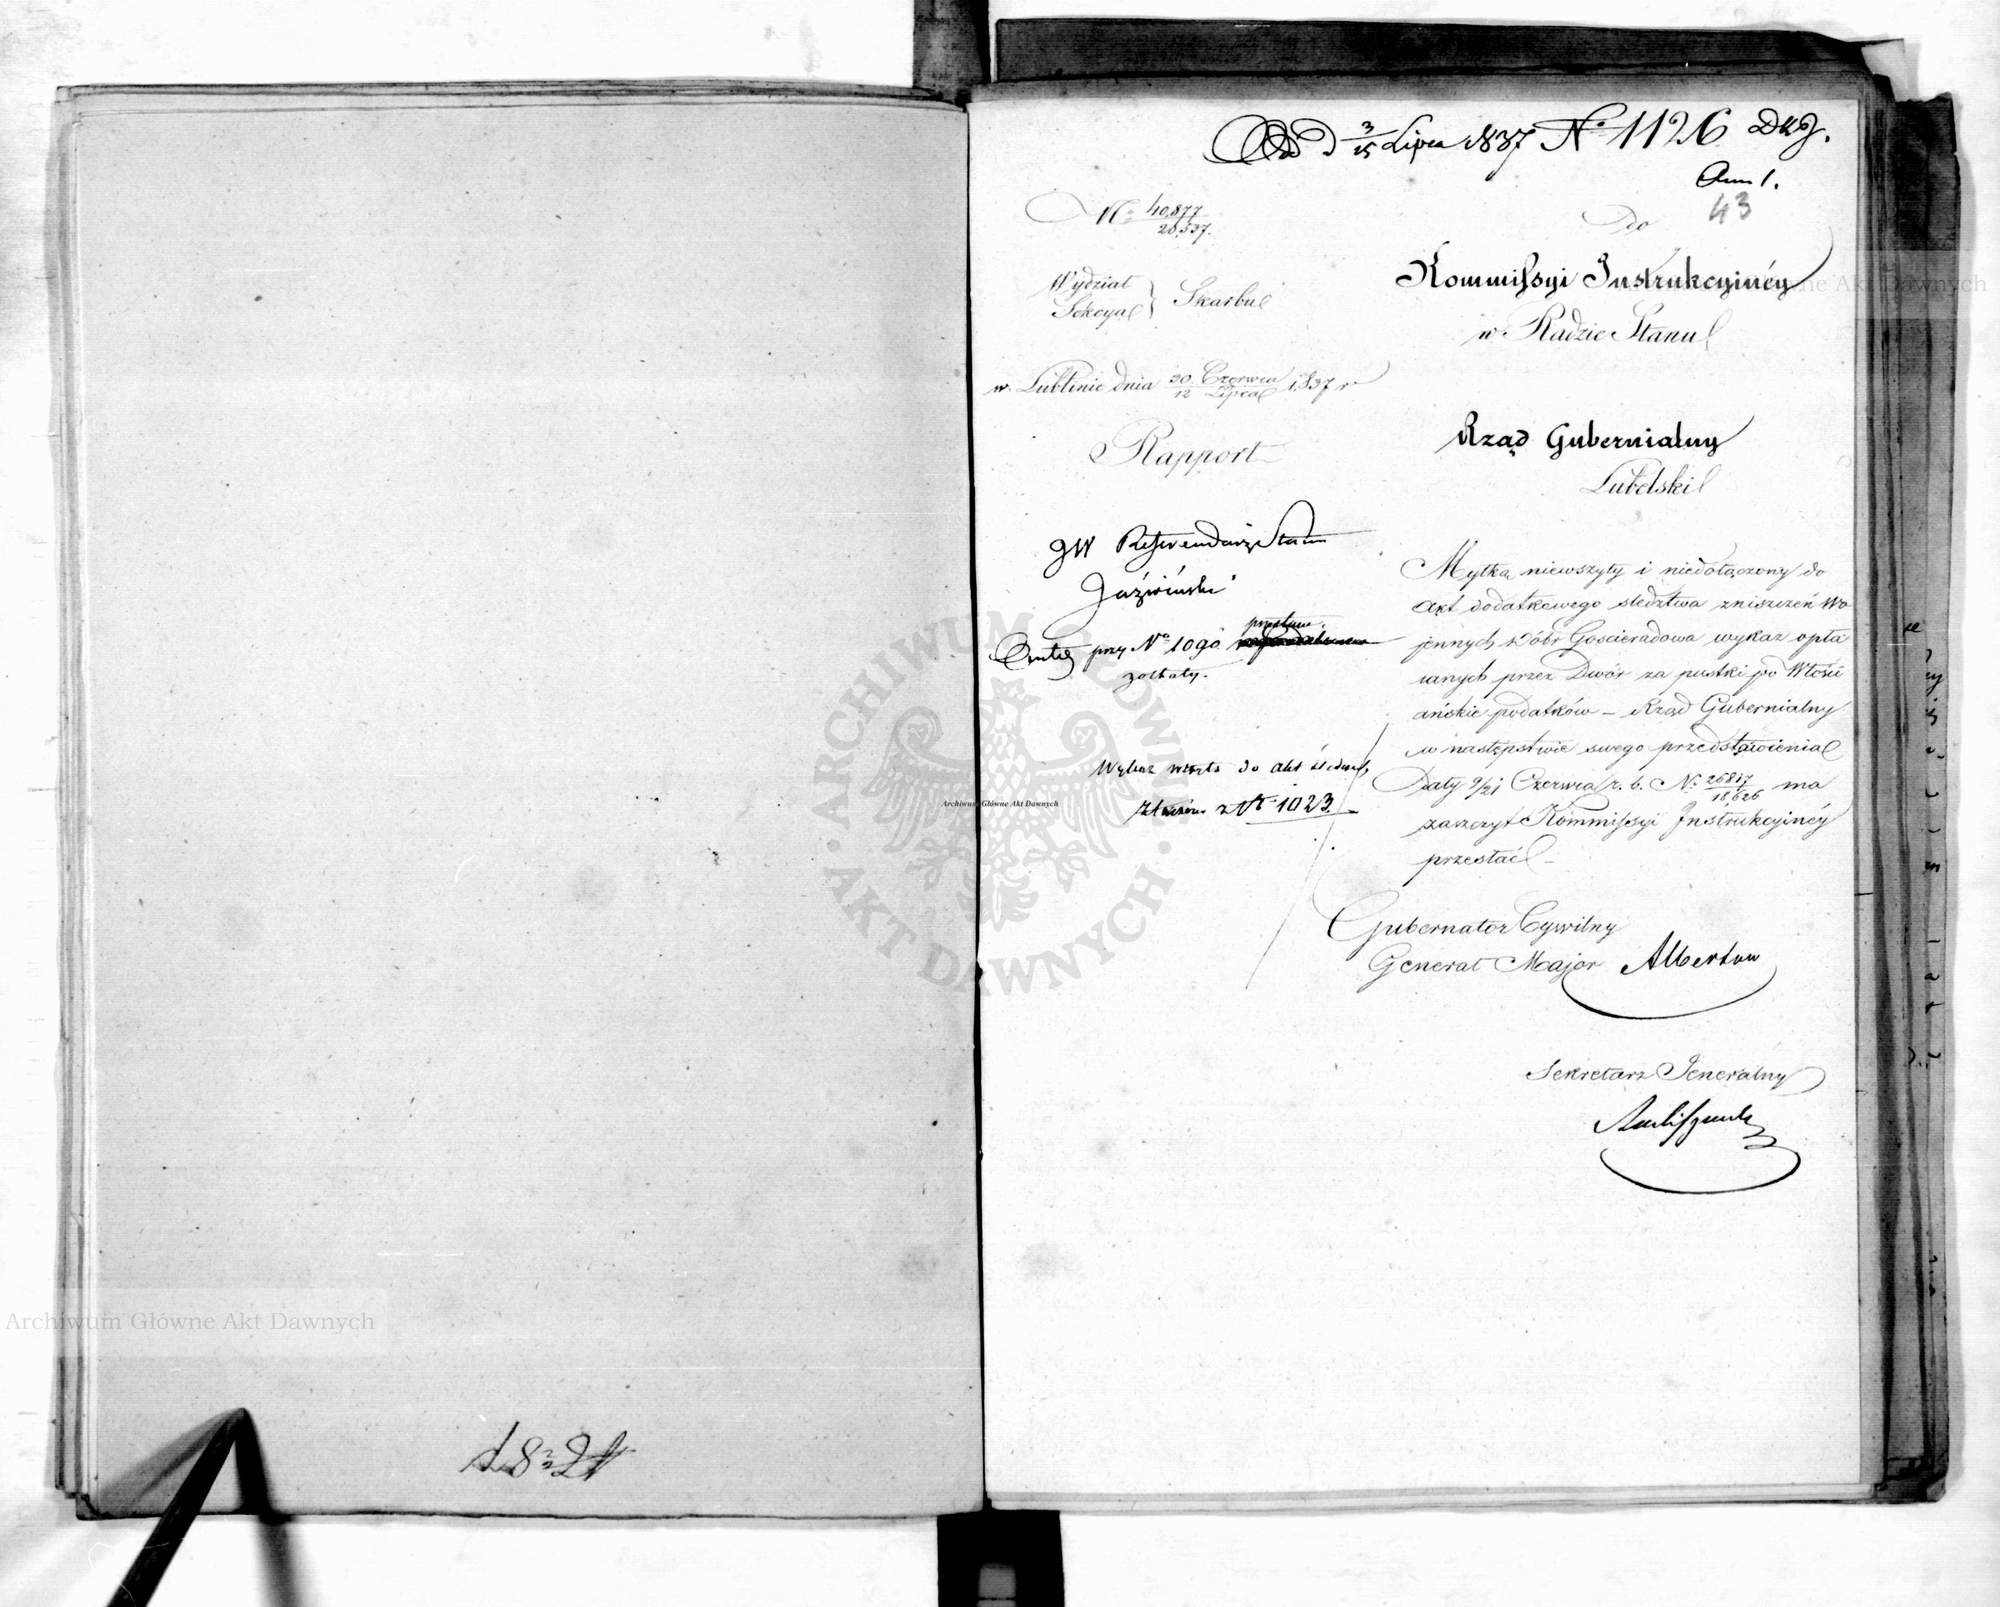 d 3/15 Lipca 1837 N. 1126 DKJ.
Ann 1.
43
N: 40,877/20,537.
Wydział
Sekcya } Skarbu
w Lublinie dnia 30 Czerwca/12 Lipca 1837 r
Rapport
JW Referendarz Stanu
Jaźwiński
przy No 1090. przesłane
zostały.
Wykaz wszyto do akt śledczych
złożon. z N 1023.
do
Kommissyi Instrukcyinéy
w Radzie Stanu
Rząd Gubernialny
Lubelski
Mylką niewszyty i niedołączony do
Akt dodatkowego śledztwa zniszczeń Wo
jennych Dóbr Gościeradowa wykaz opła
canych przez Dwór za pustki po Włości
ańskie podatków – Rząd Gubernialny
w następstwie swego przedstawienia
Daty 9/21 Czerwca r. b. N: 26817/18,626 ma
zaszczyt Kommissyi Instrukcyinéy
przesłać –
Gubernator Cywilny
Generał Major Albertow
Sekretarz Jeneralny
Archiwum Główne Akt Dawnych
ARCHIWUM GŁÓWNE
AKT DAWNYCH
Archiwum Główne Akt Dawnych